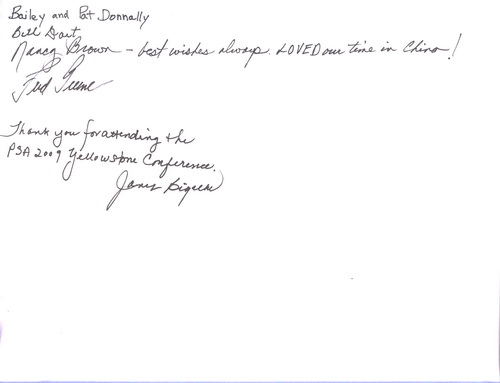 Bailey and Pat Donnally
Bill
Nancy Brown - best wishes always. LOVED our time in China!
Fred
Thank you for attending the
PSA 2009 Yellowstone Conference.